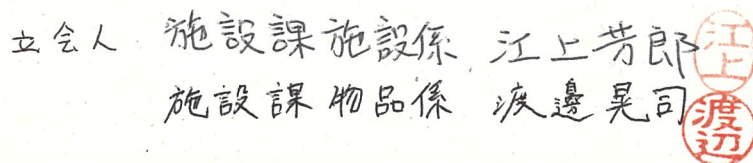 立会人 施設課施設係 江上芳郎 江上
施設課物品係 渡邊晃司 渡辺